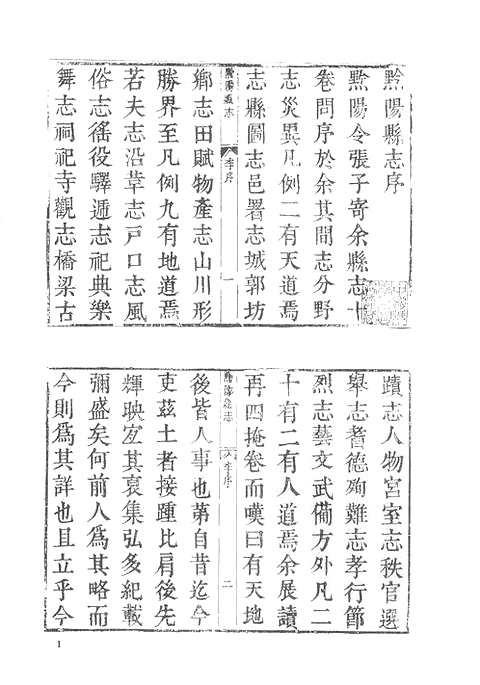 黔陽縣志序
黔陽令張子寄余縣志十
卷問序於余其間志分野
志災異凡例二有天道焉
志縣圖志邑署志城郭坊
黔陽縣志
李序
一
鄉志田賦物產志山川形
勝界至凡例九有地道焉
若夫志沿革志戸口志風
俗志徭役驛遞志祀典樂
舞志祠祀寺觀志橋梁古
蹟志人物宮室志秩官選
舉志耆德殉難志孝行節
烈志藝文武備方外凡二
十有二有人道焉余展讀
再四掩卷而嘆曰有天地
黔陽縣志
李序
二
後皆人事也苐自昔迄今
吏茲土者接踵比肩後先
輝映宐其裒集弘多紀載
彌盛矣何前人爲其略而
今則爲其詳也且立乎今
1